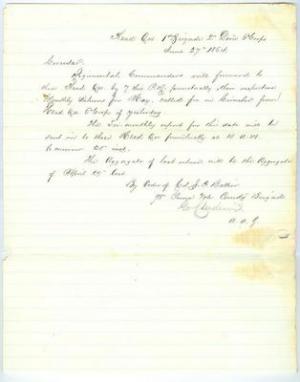 Head Qrs 1st Brigade 2d Divn 6 Corps
June 27th 1864
Circular
Regimental Commanders will forward to
these Head Qrs by 7 this P.M. punctually, their inspection
Monthly Returns for May, called for in Circular from
Head Qrs 6 Corps of yesterday
The Tri-monthly report for this date will be
sent in to these Head Qrs punctually at 10 A.M.
to-morrow 28 inst.
The Aggregate of last return will be the Aggregate
of April
By Order of Col J. F. Ballier
98 Penna Vols Comdg Brigade
A. A. G